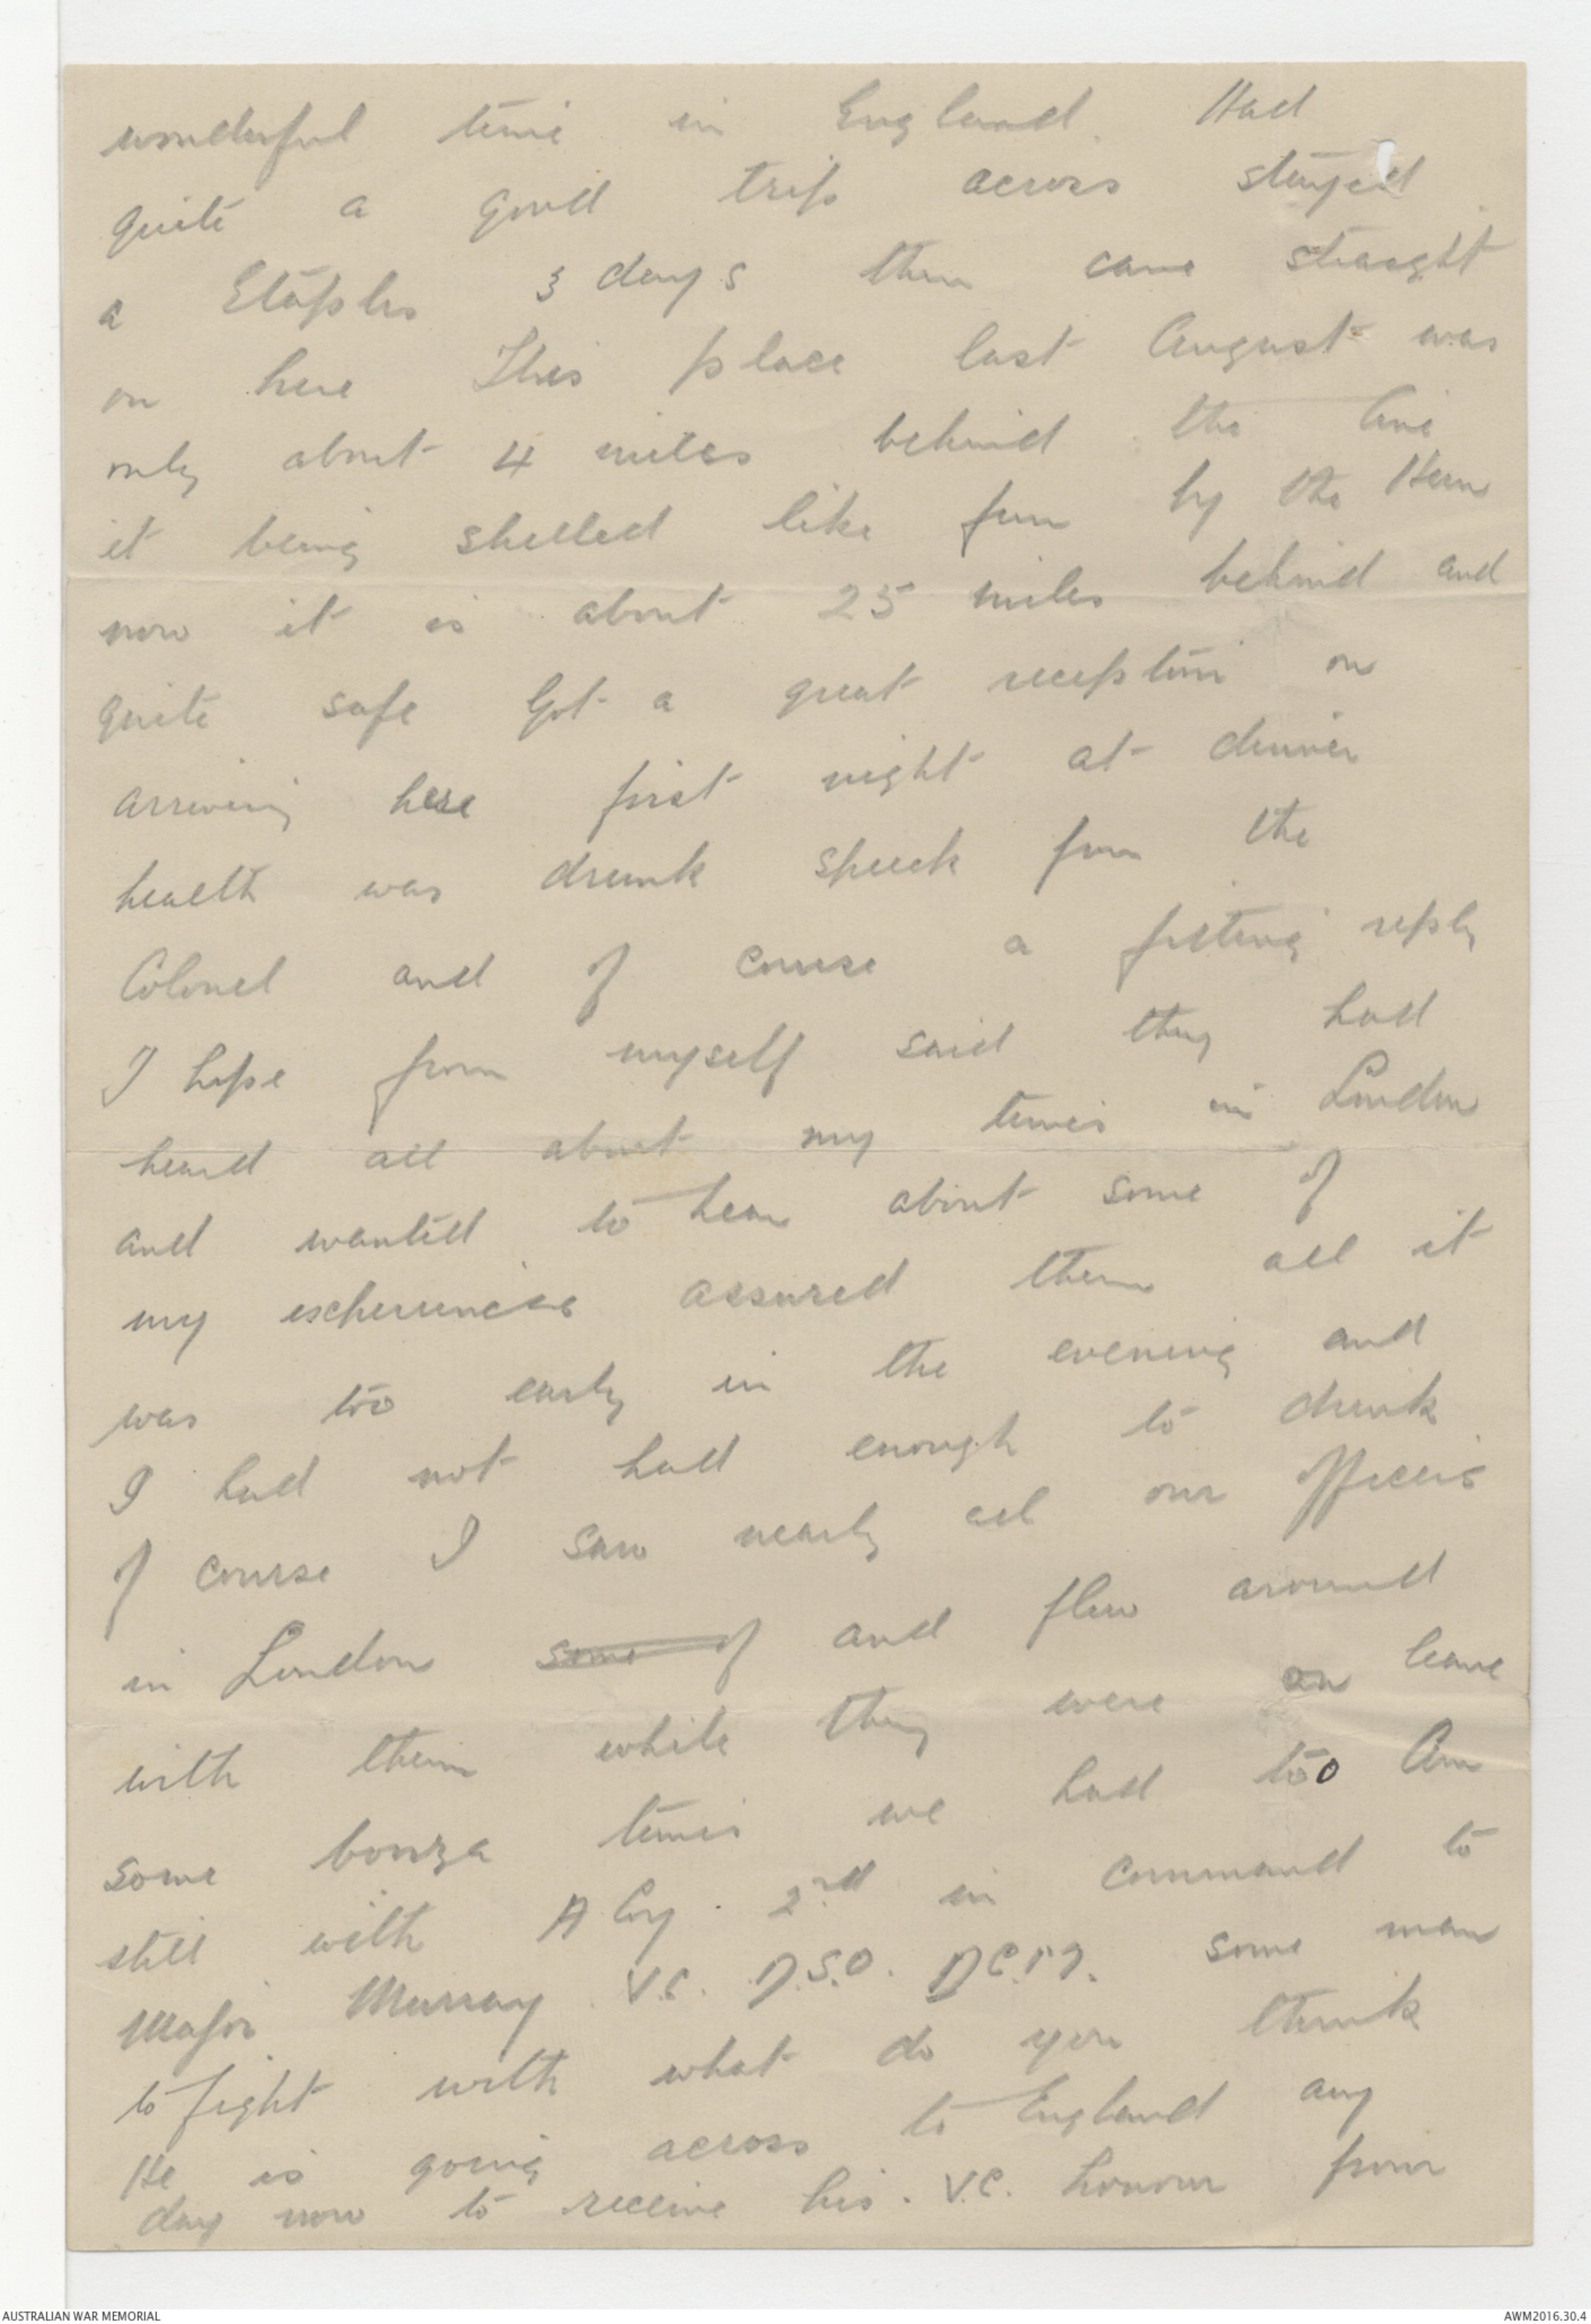 wonderful time in England. Had
quite a good trip across stayed
a Etaples 3 days then came straight
on here This place last August was
only about 4 miles behind the line
it being shelled like fun by the Hun
now it is about 25 miles behind and
quite safe Got a great reception on
arriving here first night at dinner
health was drunk speech from the
Colonel and of course a fitting reply
I hope from myself said they had
heard all about my times in London
and wanted to hear about some of
my experiences assured them all it
was too early in the evening and
I had not had enough to drink
of course I saw nearly all our officers
in London some of and flew around
with them while they were on leave
some bonza times we had too Am
still with A Coy. 2nd in command to
Major Murray V.C. D.S.O. D.C.M. some man
to fight with what do you think
He is going across to England any
day now to receive his V.C. honour from
AUSTRALIAN WAR MEMORIAL
AWM2016.30.4